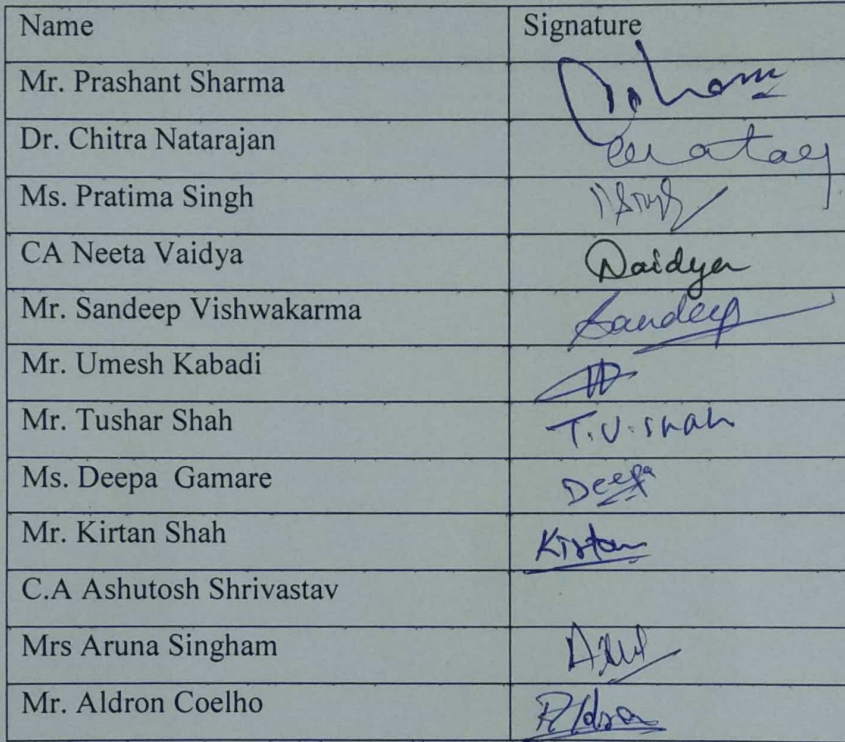 Name Signature
Mr. Prashant Sharma
Dr. Chitra Natarajan
Ms. Pratima Singh
CA Neeta Vaidya Naidya
Mr. Sandeep Vishwakarma Sandeep
Mr. Umesh Kabadi
Mr. Tushar Shah T.U.shah
Ms. Deepa Gamare Deepa
Mr. Kirtan Shah Kirtan
C.A Ashutosh Shrivastav
Mrs Aruna Singham
Mr. Aldron Coelho